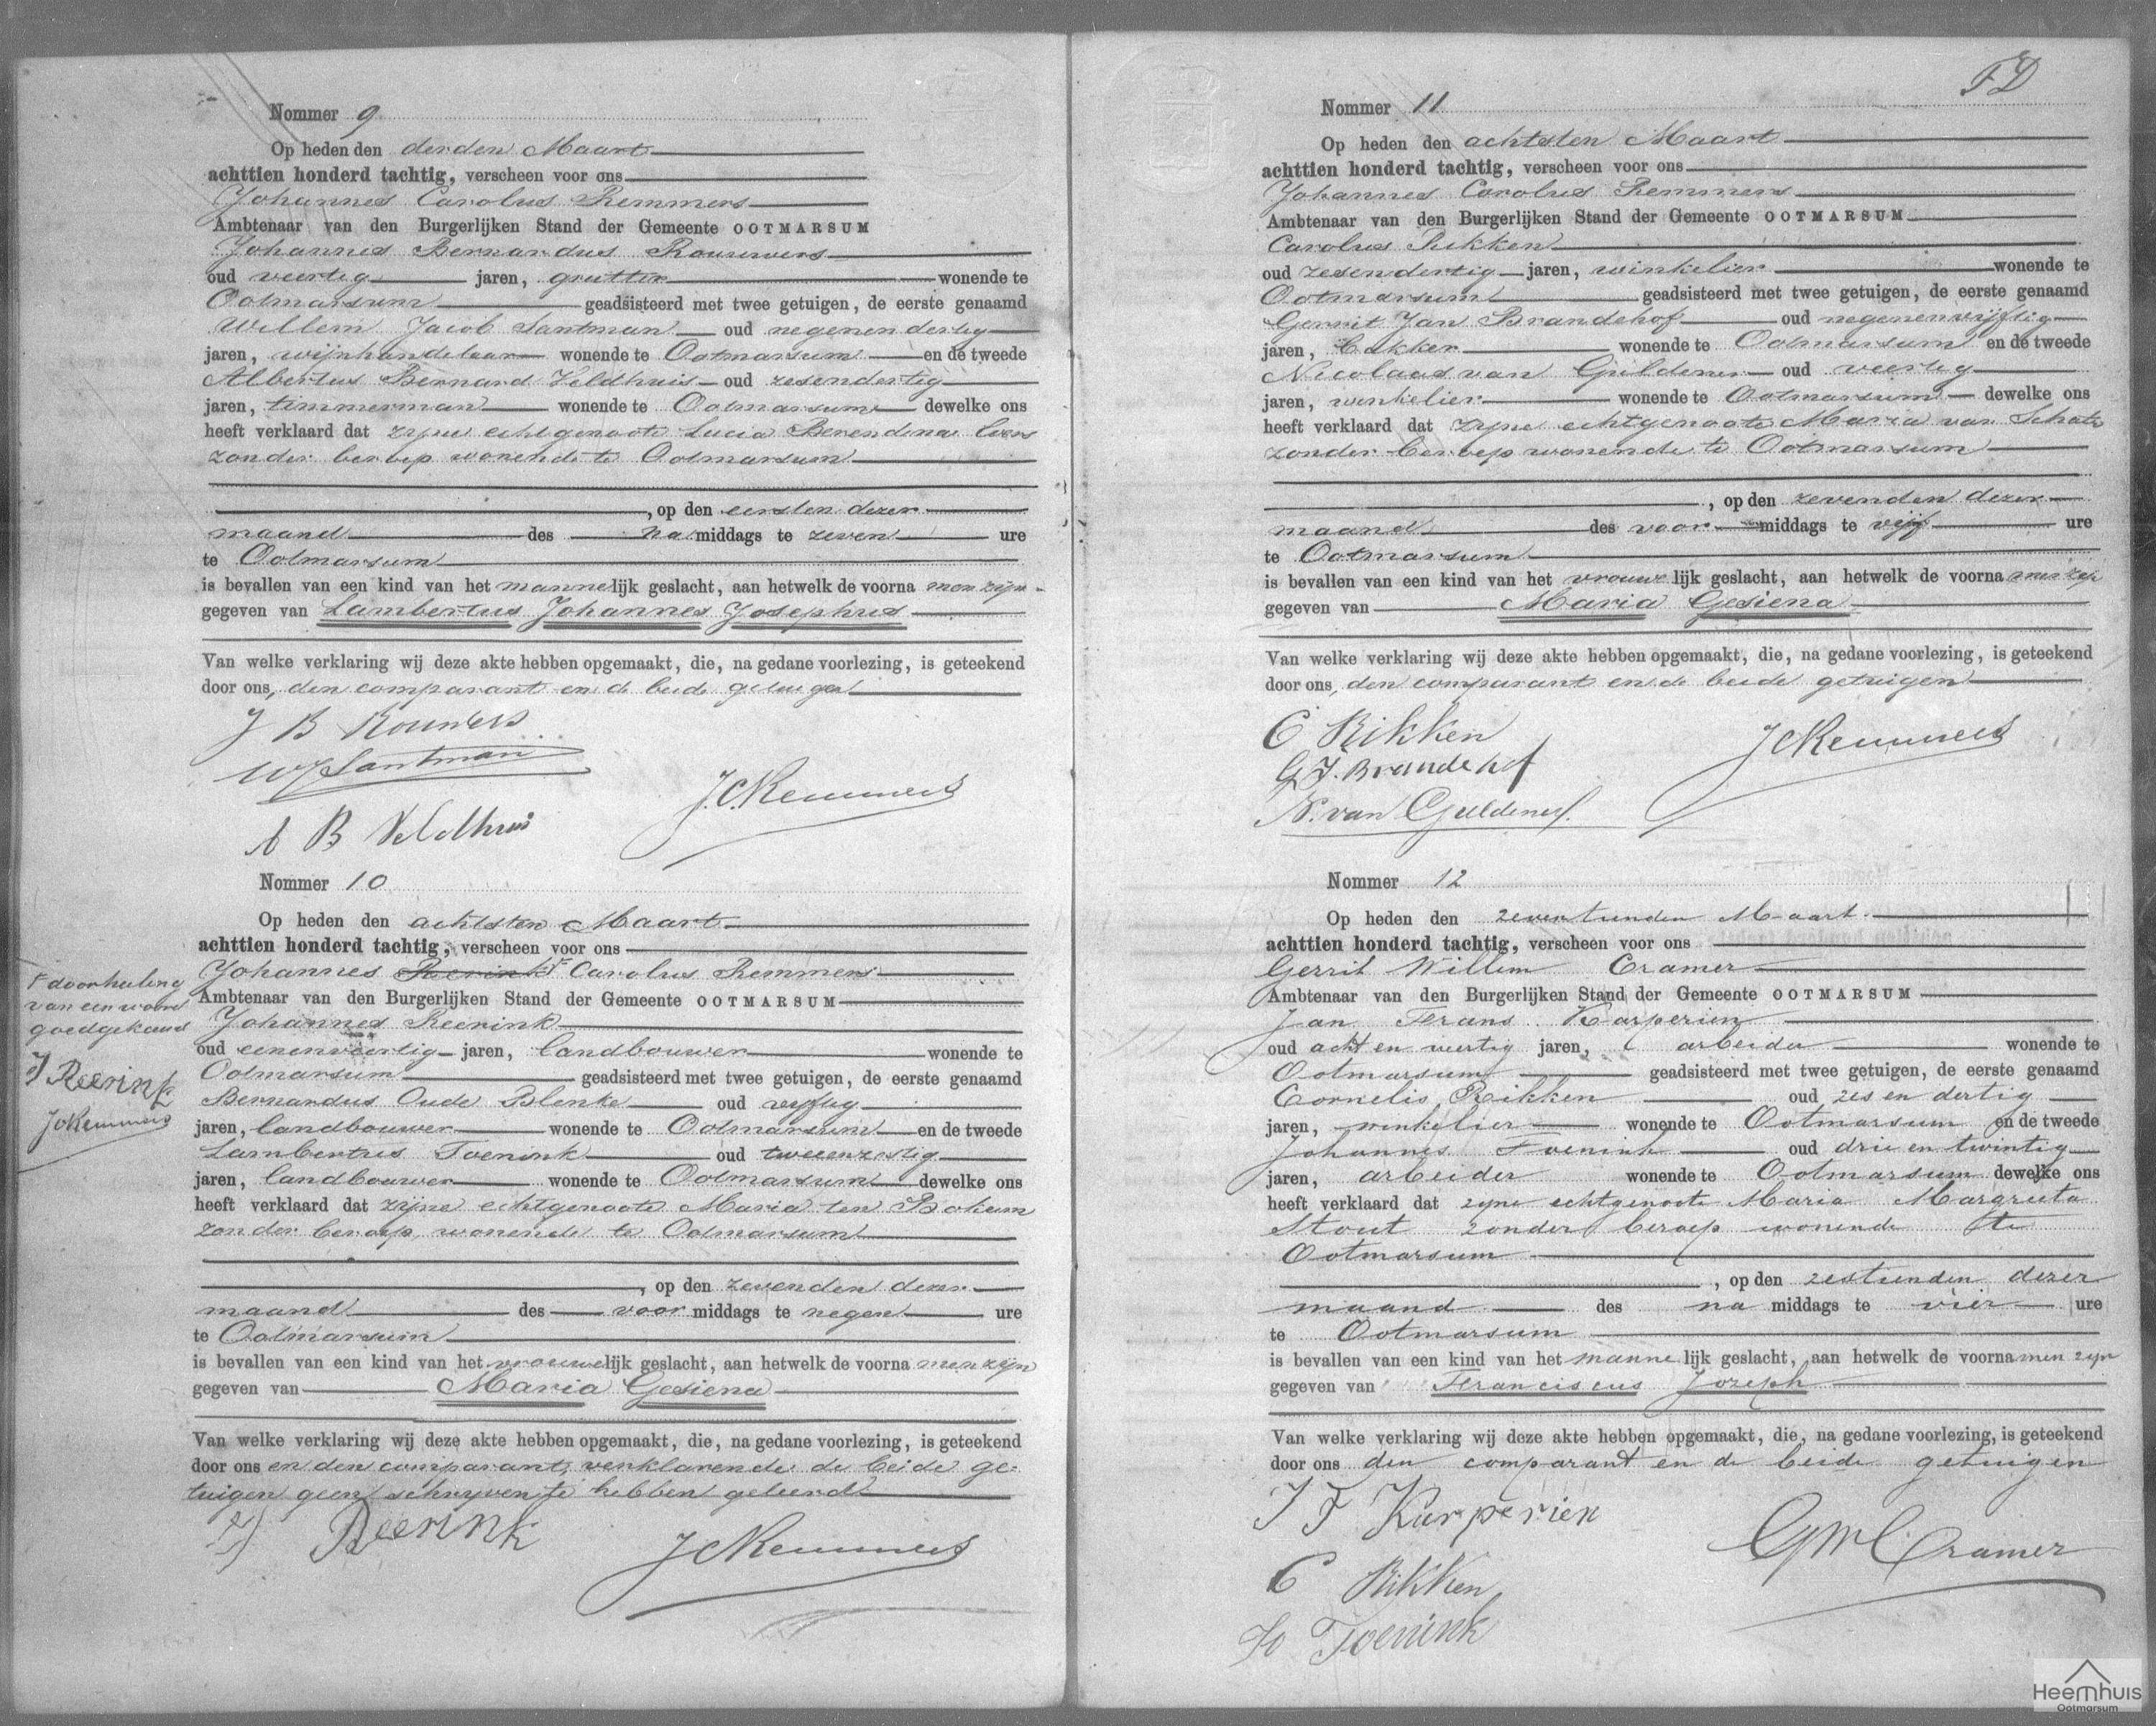 Nommer 9
Op heden den derden Maart
achttien honderd tachtig, verscheen voor ons
Johannes Carolus Remmers
Ambtenaar van den Burgerlijken Stand der Gemeente OOTMARSUM
Johannes Bernardus Rouwers
oud veertig jaren, grutter wonende te
Ootmarsum geadsisteerd met twee getuigen, de eerste genaamd
Willem Jacob Santman oud negenendertig
jaren, wijnhandelaar wonende te Ootmarsum en de tweede
Albertus Bernard Veldhuis oud zesendertig
jaren, timmerman wonende te Ootmarsum dewelke ons
heeft verklaard dat zijne echtgenoote Lucia Berendina
zonder beroep wonende te Ootmarsum
, op den eersten dezer
maand des na middags te zeven ure
te Ootmarsum
is bevallen van een kind van het mannelijk geslacht, aan hetwelk de voornamen zijn
gegeven van Lambertus Johannes Josephus
Van welke verklaring wij deze akte hebben opgemaakt, die, na gedane voorlezing, is geteekend
door ons, den comparant en de beide getuigen
J B Rouwers
WJ Santman
J.C. Remmers
A B Veldhuis
Nommer 10
Op heden den achtsten Maart
achttien honderd tachtig, verscheen voor ons
Johannes Reerink Carolus Remmers
Ambtenaar van den Burgerlijken Stand der Gemeente OOTMARSUM
Johannes Reerink
oud eenenveertig jaren, landbouwer wonende te
Ootmarsum geadsisteerd met twee getuigen, de eerste genaamd
Bernardus Oude Blenke oud vyftig
jaren, landbouwer wonende te Ootmarsum en de tweede
Lambertus Toenink oud tweeenzestig
jaren, landbouwer wonende te Ootmarsum dewelke ons
heeft verklaard dat zijne echtgenoote Maria ten Bokum
zonder beroep wonende te Ootmarsum
, op den zevenden dezer
maand des voor middags te negen ure
te Ootmarsum
is bevallen van een kind van het vrouwelijk geslacht, aan hetwelk de voornamen zijn
gegeven van Maria Gesiena
Van welke verklaring wij deze akte hebben opgemaakt, die, na gedane voorlezing, is geteekend
door ons en den comparant, verklarende de beide ge-
tuigen geen schryven te hebben geleerd
J Reerink
JC Remmers
doorhaling
van een woord
goedgekeurd
J Reerink
JC Remmers
FD
Nommer 11
Op heden den achtsten Maart
achttien honderd tachtig, verscheen voor ons
Johannes Carolus Remmers
Ambtenaar van den Burgerlijken Stand der Gemeente OOTMARSUM
Carolus Rikken
oud zesendertig jaren, winkelier wonende te
Ootmarsum geadsisteerd met twee getuigen, de eerste genaamd
Gerrit Jan Brandehof oud negenenvijftig
jaren, bakker wonende te Ootmarsum en de tweede
Nicolaas van Guldener oud veertig
jaren, winkelier wonende te Ootmarsum dewelke ons
heeft verklaard dat zijne echtgenoote Maria van
zonder beroep wonende te Ootmarsum
, op den zevenden dezer
maand des voor middags te vijf ure
te Ootmarsum
is bevallen van een kind van het vrouwelijk geslacht, aan hetwelk de voornamen zijn
gegeven van Maria Gesiena
Van welke verklaring wij deze akte hebben opgemaakt, die, na gedane voorlezing, is geteekend
door ons, den comparant en de beide getuigen
C Rikken
JC Remmers
G J. Brandehof
N. van Guldener
Nommer 12
Op heden den zeventienden Maart
achttien honderd tachtig, verscheen voor ons
Gerrit Willem Cramer
Ambtenaar van den Burgerlijken Stand der Gemeente OOTMARSUM
Jan Frans Karperien
oud acht en veertig jaren, arbeider wonende te
Ootmarsum geadsisteerd met twee getuigen, de eerste genaamd
Cornelis Rikken oud zes en dertig
jaren, winkelier wonende te Ootmarsum en de tweede
Johannes Toenink oud drie en twintig
jaren, arbeider wonende te Ootmarsum dewelke ons
heeft verklaard dat zyne echtgenoote Maria Margreeta
Stout zonder beroep wonende te
Ootmarsum
, op den zestienden dezer
maand des na middags te vier ure
te Ootmarsum
is bevallen van een kind van het mannelijk geslacht, aan hetwelk de voornamen zijn
gegeven van Franciscus Jozeph
Van welke verklaring wij deze akte hebben opgemaakt, die, na gedane voorlezing, is geteekend
door ons den comparant en de beide getuigen
J F Karperien
GWCramer
C Rikken
Jo Toenink
Heemhuis
Ootmarsum